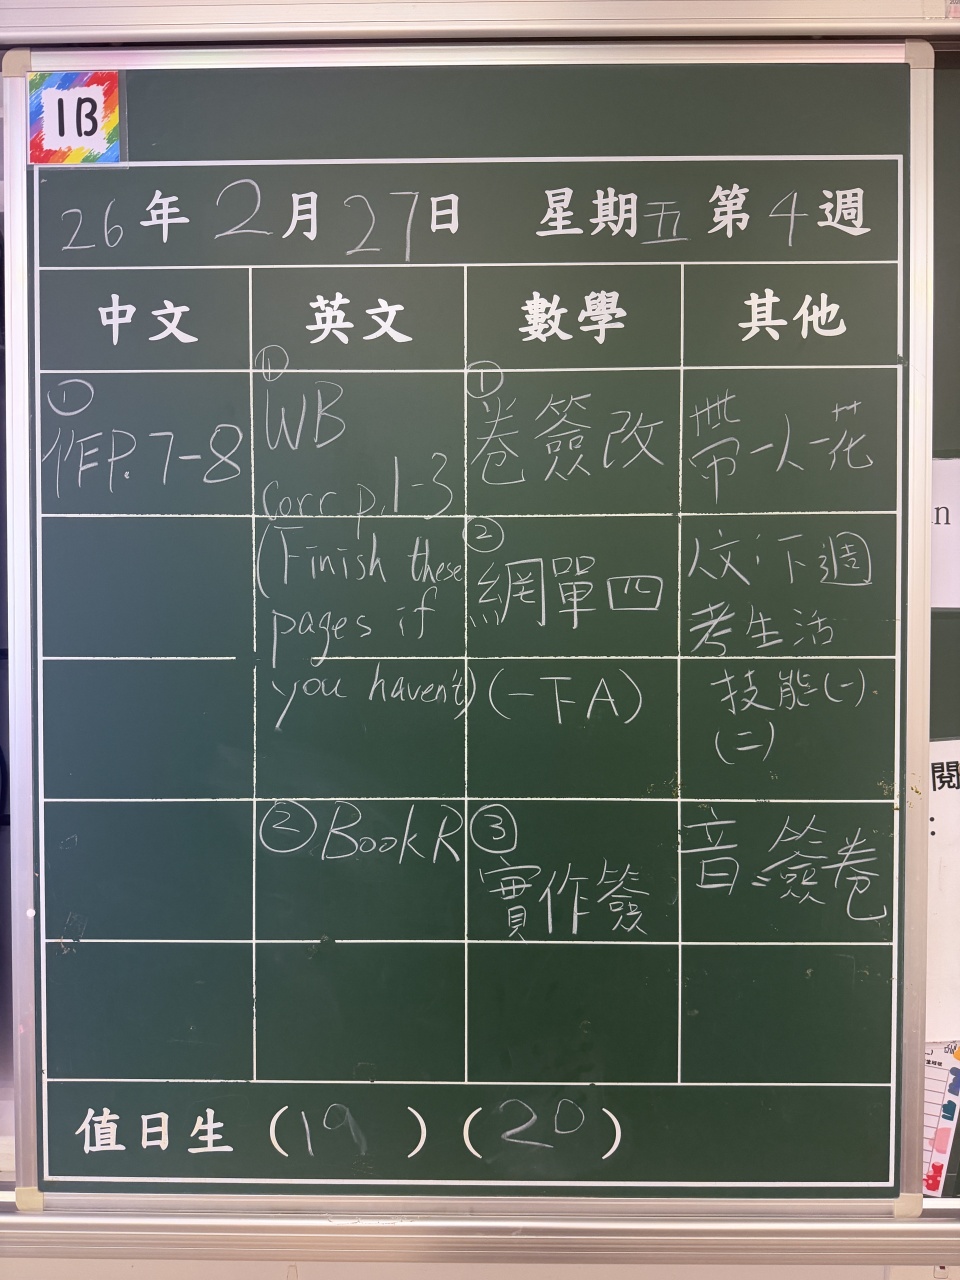 1B
26年2月27日 星期五 第4週
中文 英文 數學 其他
①
作P.7-8
①
WB
corr p.1-3
(Finish these
pages if
you haven't)
② Book R
①
卷簽改
②
網單四
(一下A)
③
實作簽
帶一人一花
人文:下週
考生活
技能(一)
(二)
音:簽卷
值日生 (19) (20)
in
閱
: